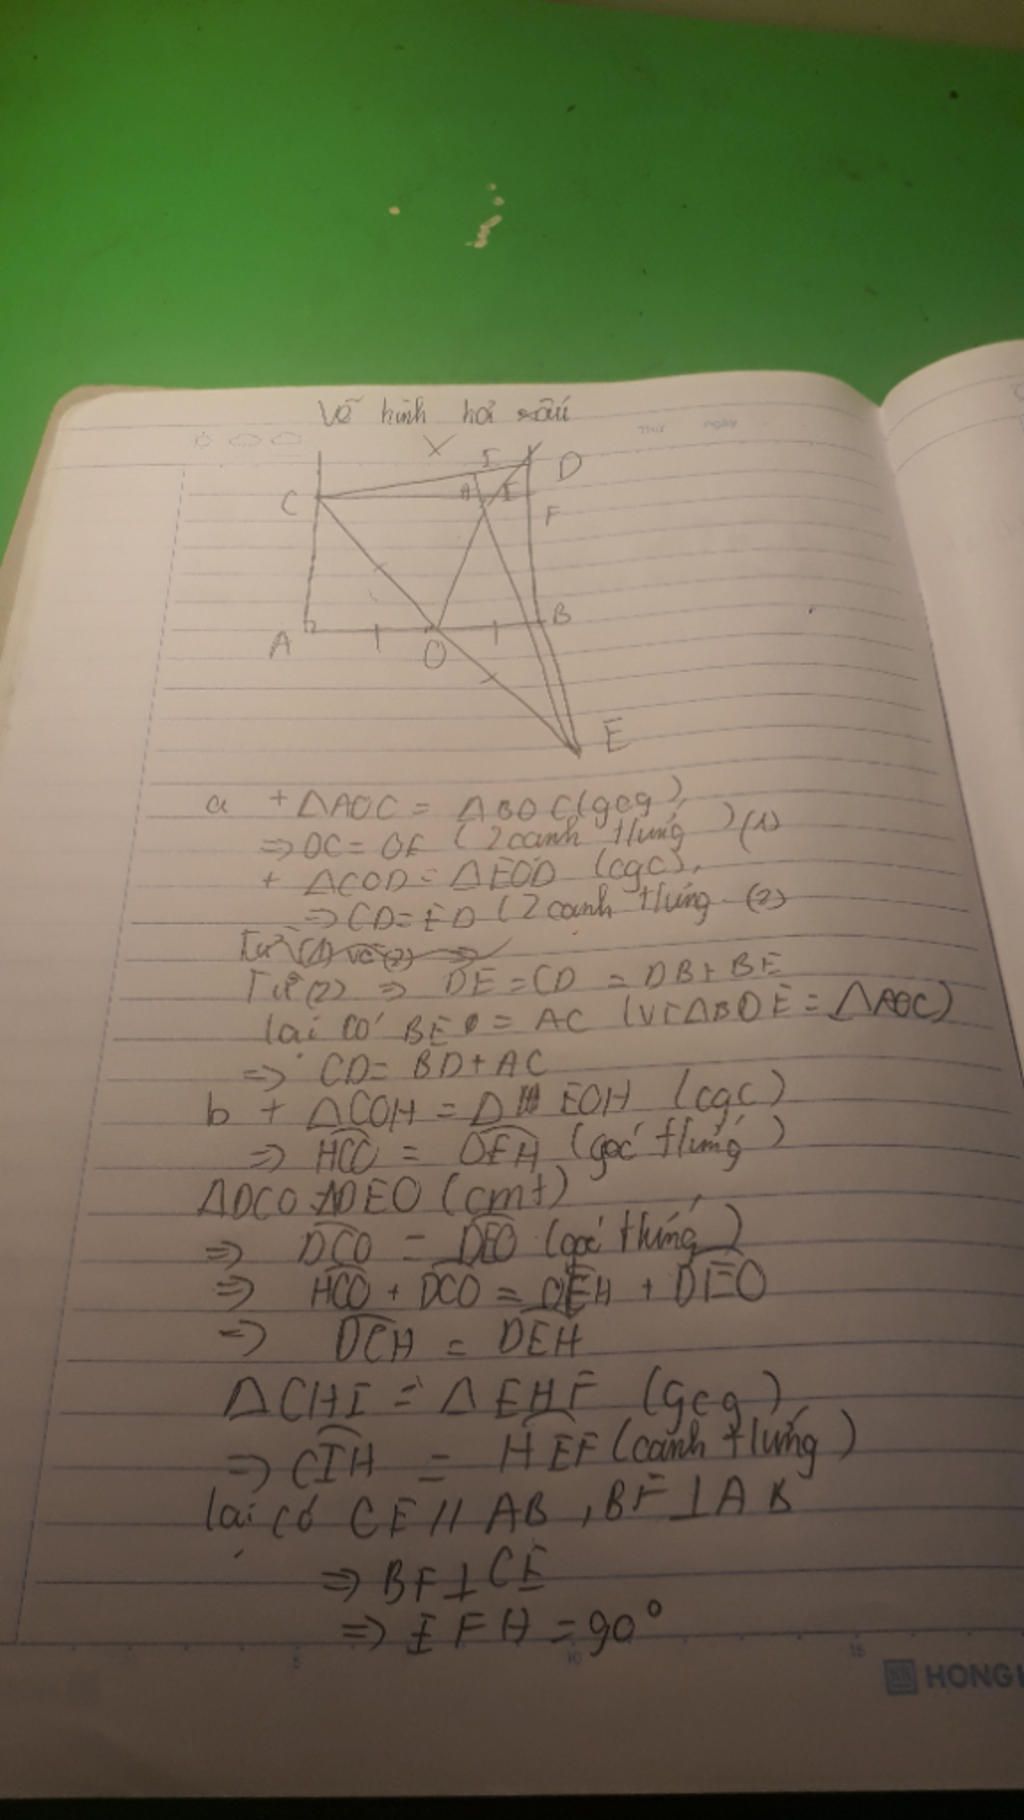 Vẽ hình hơi xấu
THỨ NGÀY
X
I
D
C
H
I
F
A
O
B
E
a + △AOC = △BOC (gcg)
⇒ OC = OE (2 cạnh tứng) (1)
+ △COD = △EOD (cgc)
⇒ CD = ED (2 cạnh tứng (2)
Từ (1) và (2) ⇒
Từ (2) ⇒ DE = CD = DB + BE
lại có BE = AC (vì △BOE = △AOC)
⇒ CD = BD + AC
b + △COH = △ EOH (cgc)
⇒ HCO = OEH (góc tứng)
△DCO = △DEO (cmt)
⇒ DCO = DEO (góc tứng)
⇒ HCO + DCO = OEH + DEO
⇒ DCH = DEH
△CHI = △EHF (gcg)
⇒ CIH = HEF (cạnh tứng)
lại có CF // AB, BF ⊥ AB
⇒ BF ⊥ CF
⇒ EFH = 90°
5 10 15
HONG